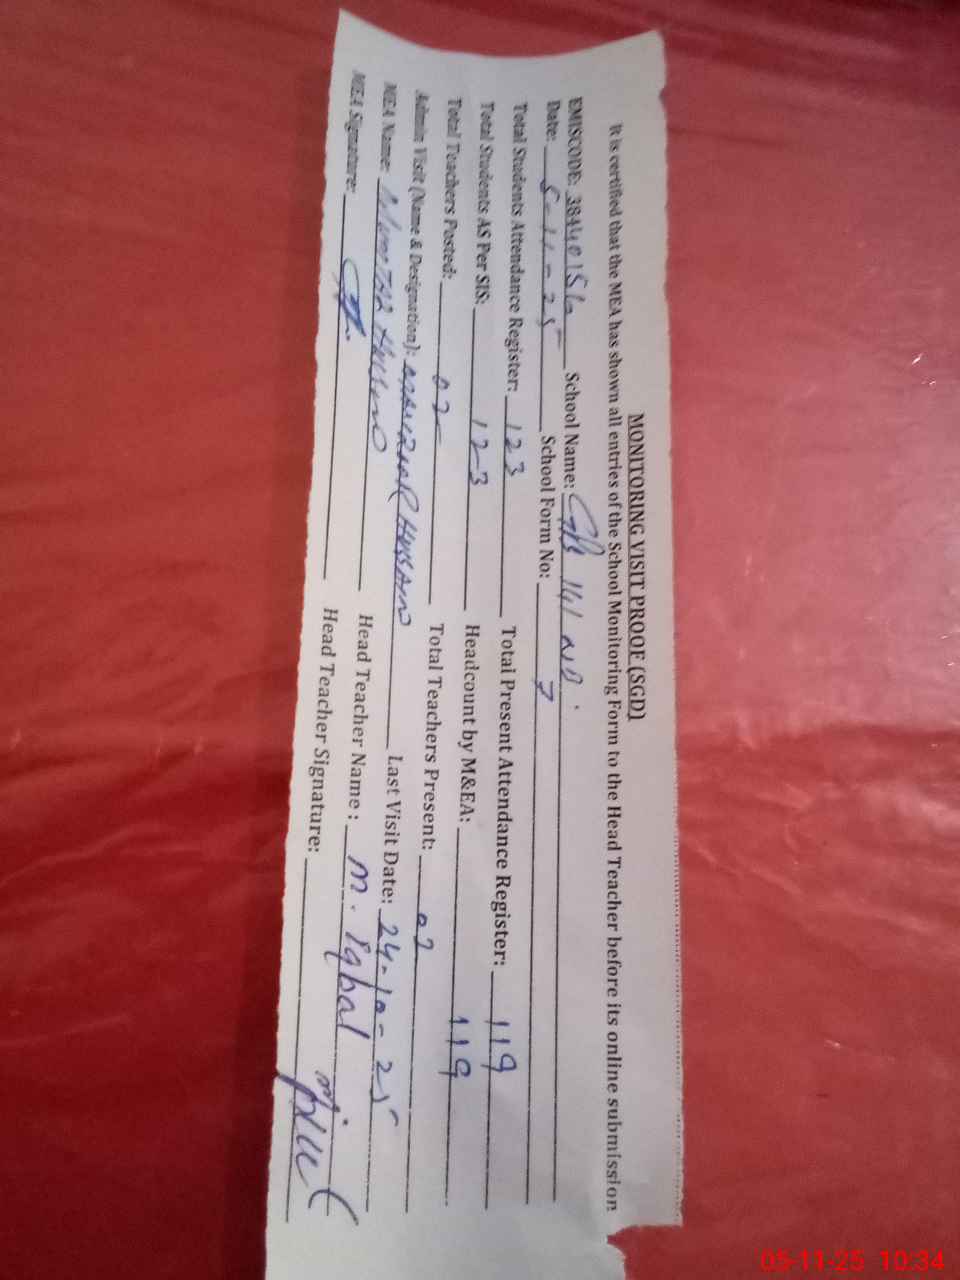 MONITORING VISIT PROOF (SGD)
It is certified that the MEA has shown all entries of the School Monitoring Form to the Head Teacher before its online submission
EMISCODE: 38440156 School Name: GPS 141 NB.
Date: 5-11-25 School Form No: 7
Total Students Attendance Register: 123 Total Present Attendance Register: 119
Total Students AS Per SIS: 123 Headcount by M&EA: 119
Total Teachers Posted: 02 Total Teachers Present: 02
Admin Visit (Name & Designation): Last Visit Date: 24-10-25
MEA Name: Head Teacher Name : M. Iqbal
MEA Signature: Head Teacher Signature:
05-11-25 10:34